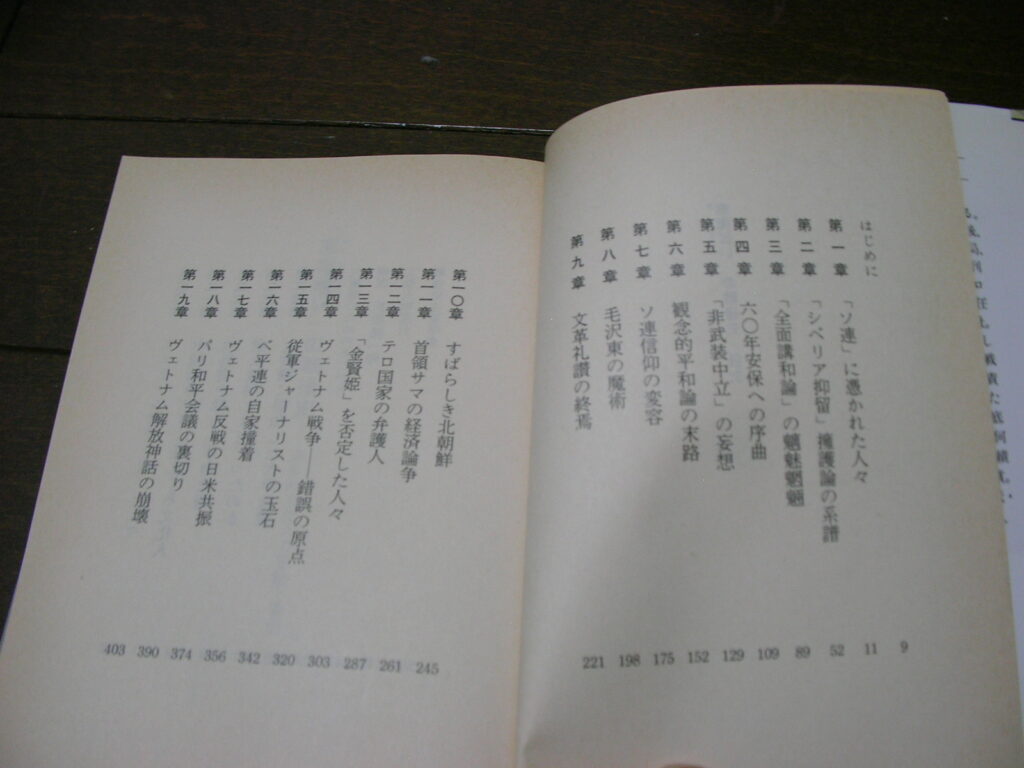 はじめに 9
第一章 「ソ連」に憑かれた人々 11
第二章 「シベリア抑留」擁護論の系譜 52
第三章 「全面講和論」の魑魅魍魎 89
第四章 六〇年安保への序曲 109
第五章 「非武装中立」の妄想 129
第六章 観念的平和論の末路 152
第七章 ソ連信仰の変容 175
第八章 毛沢東の魔術 198
第九章 文革礼讃の終焉 221
第一〇章 すばらしき北朝鮮 245
第一一章 首領サマの経済論争 261
第一二章 テロ国家の弁護人 287
第一三章 「金賢姫」を否定した人々 303
第一四章 ヴェトナム戦争——錯誤の原点 320
第一五章 従軍ジャーナリストの玉石 342
第一六章 ベ平連の自家撞着 356
第一七章 ヴェトナム反戦の日米共振 374
第一八章 パリ和平会議の裏切り 390
第一九章 ヴェトナム解放神話の崩壊 403